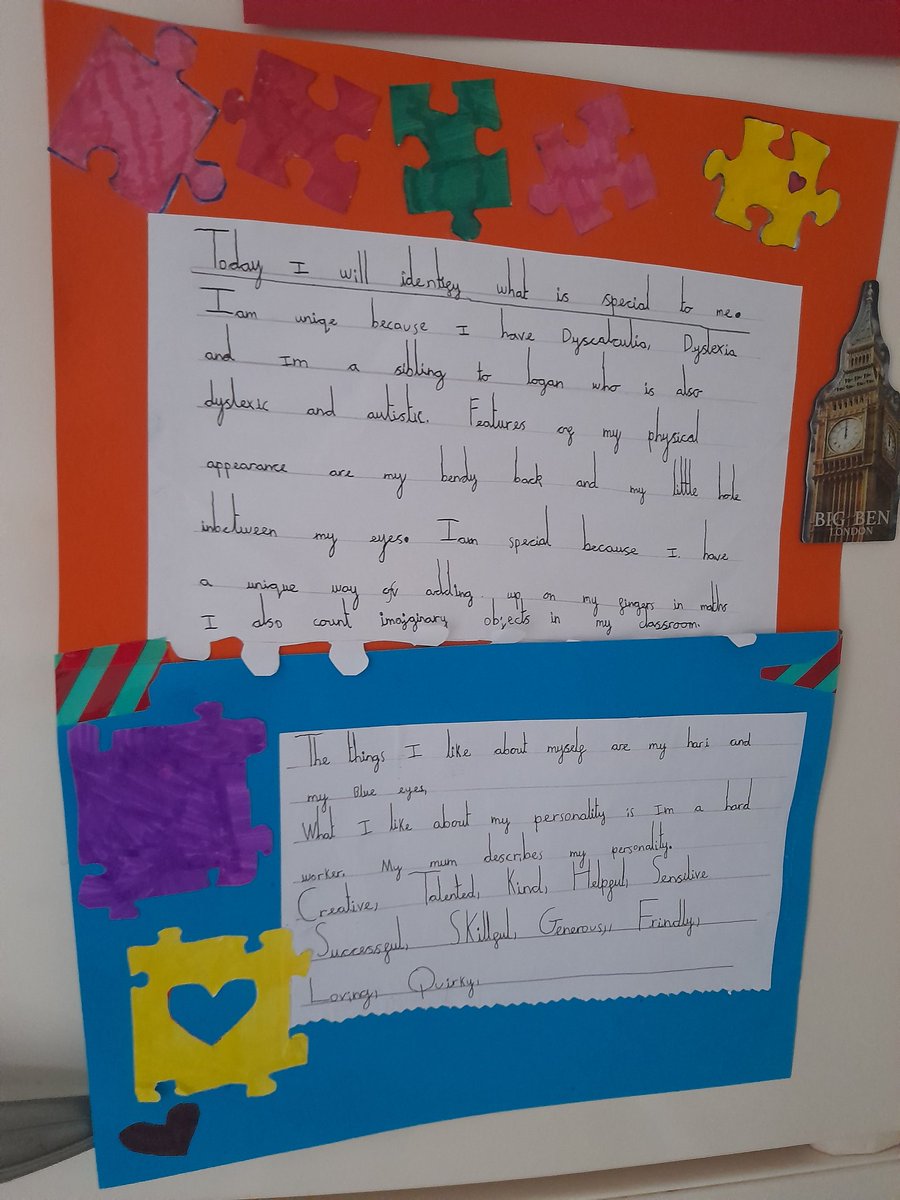 Today I will identify what is special to me.
I am uniqe because I have Dyscalculia, Dyslexia
and Im a sibling to logan who is also
dyslexic and autistic. Features of my physical
appearance are my bendy back and my little hole
inbetween my eyes. I am special because I have
a unique way of adding up on my fingers in maths
I also count imajginary objects in my classroom.
BIG BEN
LONDON
The things I like about myself are my hari and
my Blue eyes,
What I like about my personality is Im a hard
worker. My mum describes my personality.
Creative, Talented, Kind, Helpful, Sensitive
Successful, Skillful, Generous,, Frindly,
Loving, Quirky,